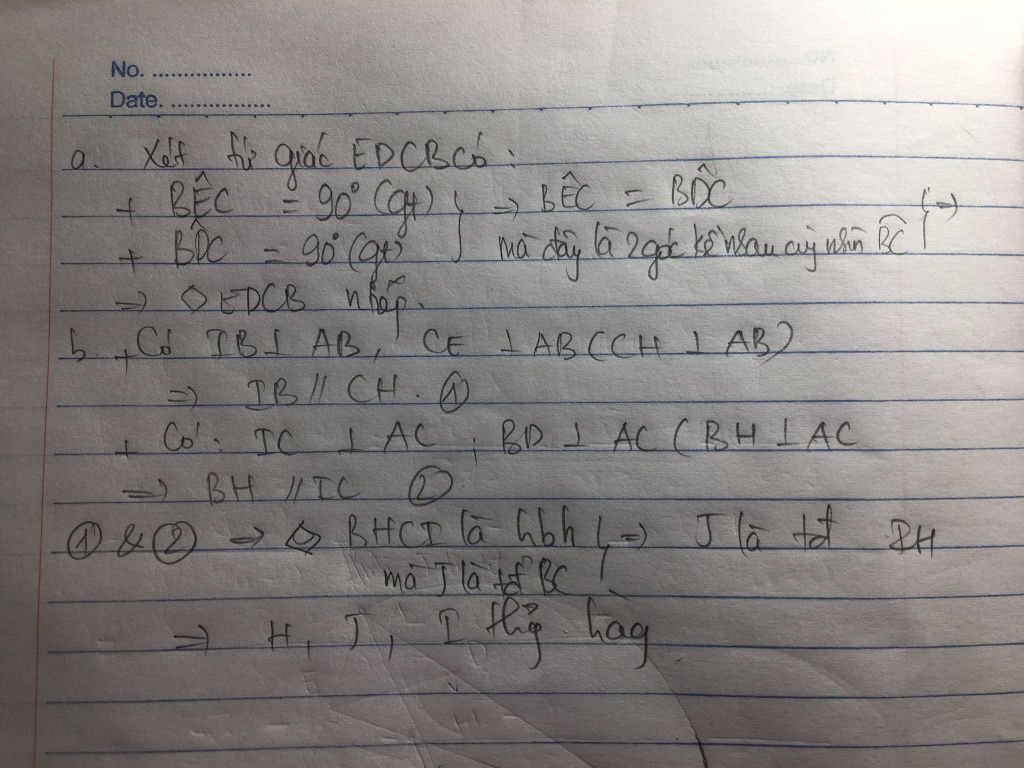 No. ................
Date. ................
a. Xét tứ giác EDCB có :
+ BÊC = 90° (gt) } => BÊC = BD̂C } =>
+ BD̂C = 90° (gt) mà đây là 2 góc kề nhau cùg nhìn BC
=> ◇ EDCB nhếp.
b. + Có IB ⊥ AB, CE ⊥ AB (CH ⊥ AB)
=> IB // CH. ①
+ Có : IC ⊥ AC ; BD ⊥ AC (BH ⊥ AC
=> BH // IC ②
① & ② => ◇ BHCI là hbh } => J là tđ IH
mà J là tđ BC
=> H, J, I thẳg hàg